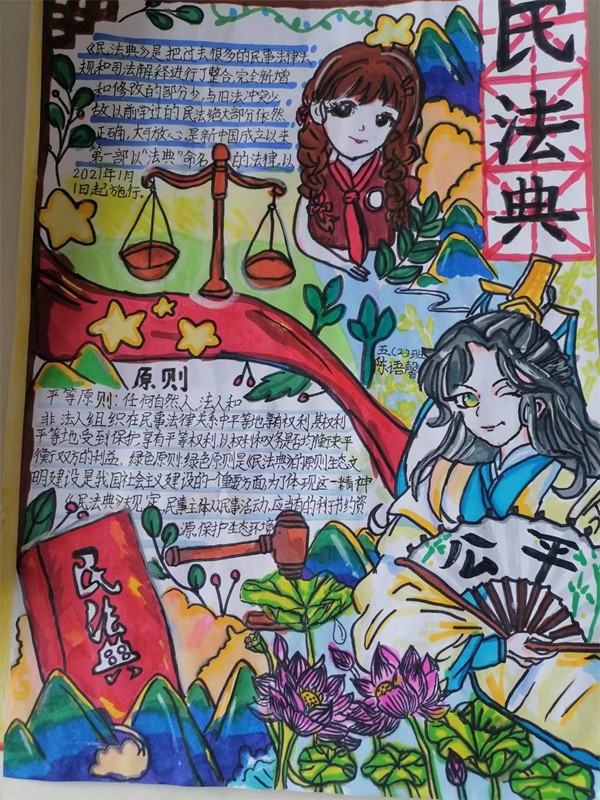 民法典
《民法典》是把过去很多的民事法律法
规和司法解释进行了整合,完全新增
和修改的部分少,与旧法冲突少
故以前学过的民法绝大部分依然
正确,大可放心,是新中国成立以来
第一部以“法典”命名的法律,从
2021年1月
1日起施行。
五(2)班
陈语馨
原则
平等原则:任何自然人、法人和
非法人组织在民事法律关系中平等地享有权利,其权利
平等地受到保护享有平等权利,以权利和义务是否均衡来平
衡了双方的利益。绿色原则:绿色原则是《民法典》的原则生态文
明建设是我国社会主义建设的一个重要方面,为了体现这一精神
《民法典》规定,民事主体从事民事活动,应当有利于节约资
源,保护生态环境
公平
民法典